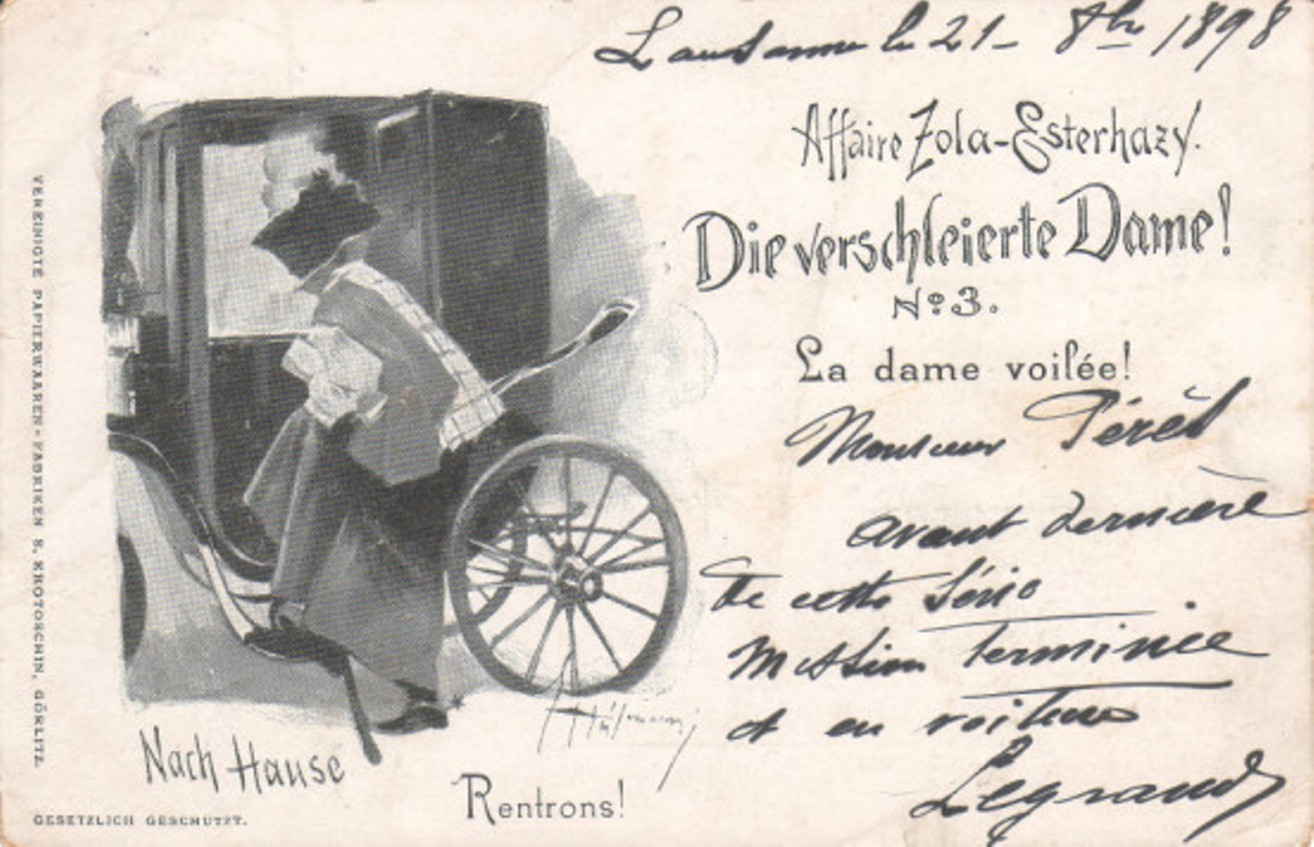 Lausanne le 21 - 8bre 1898
Affaire Zola-Esterhazy.
Die verschleierte Dame!
No 3.
La dame voilée!
Monsieur Pérès
avant dernière
de cette série
Mission terminée
et en voiture
Legrand
Nach Hause
Rentrons!
VEREINIGTE PAPIERWAAREN-FABRIKEN S. KROTOSCHIN, GÖRLITZ.
GESETZLICH GESCHÜTZT.